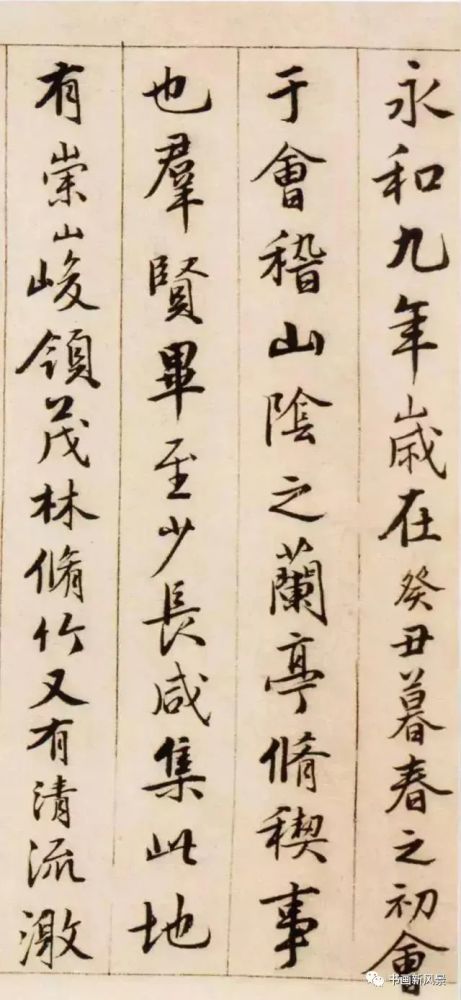 永和九年歲在癸丑暮春之初會
于會稽山陰之蘭亭脩稧事
也羣賢畢至少長咸集此地
有崇山峻領茂林脩竹又有清流激
书画新风景